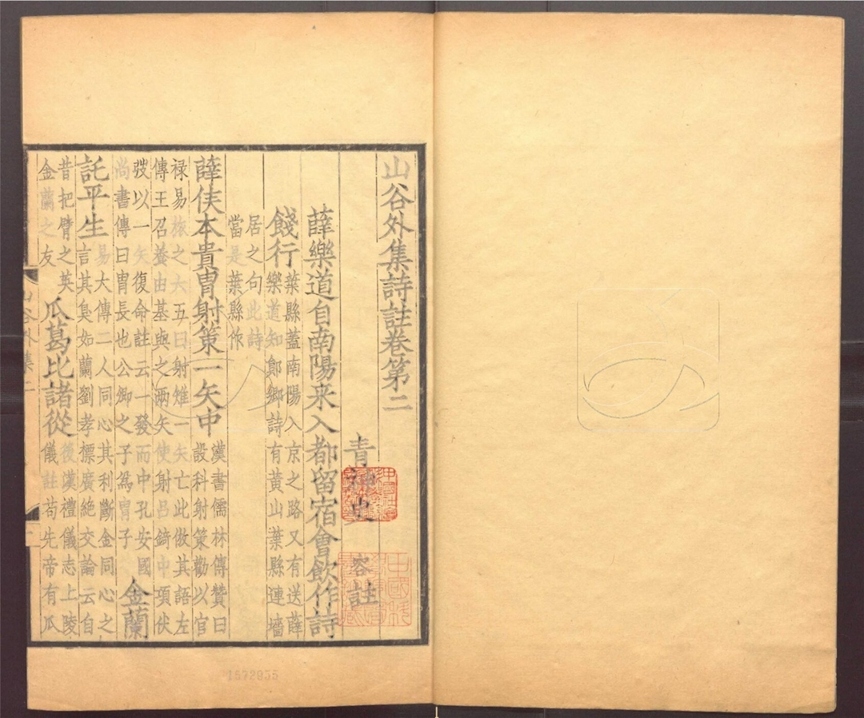 山谷外集詩註卷第二
青神史 容 註
薛樂道自南陽来入都留宿會飲作詩
餞行
葉縣蓋南陽入京之路又有送薛
樂道知鄖鄉詩有黃山葉縣連墻
居之句此詩
當是葉縣作
薛侯本貴胄射策一矢中
漢書儒林傳賛曰
設科射策勸以官
禄易旅之六五曰射雉一矢亡此倣其語左
傳王召養由基與之兩矢使射吕錡中項伏
弢以一矢復命註云一發而中孔安國
尚書傳曰胄長也公卿之子為胄子
金蘭
託平生
易大傳二人同心其利斷金同心之
言其臭如蘭劉孝標廣絶交論云自
昔把臂之英
金蘭之友
瓜葛比諸從
後漢禮儀志上陵
儀註苟先帝有瓜
山谷外集二